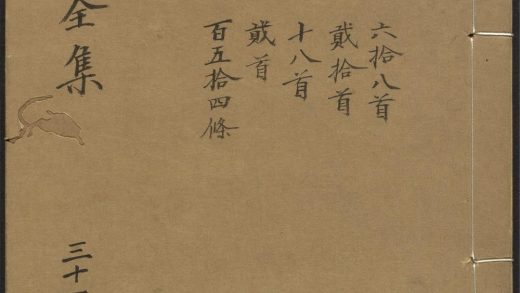 六拾八首
貳拾首
十八首
貳首
百五拾四條
全集
三十